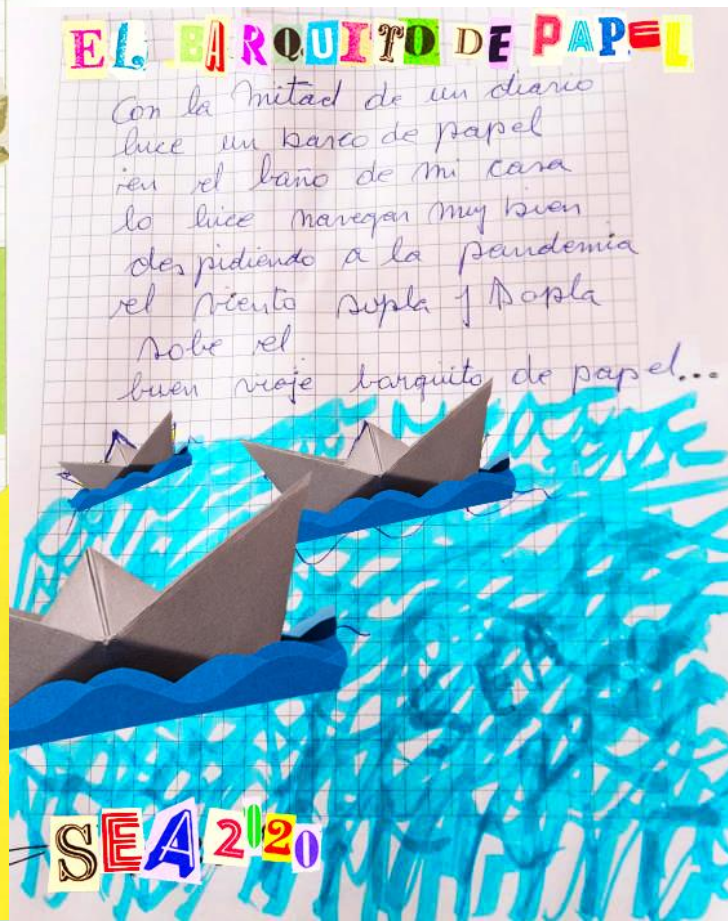 EL BARQUITO DE PAPEL
Con la mitad de un diario
hice un barco de papel
en el baño de mi casa
lo hice navegar muy bien
des pidiendo a la pandemia
el viento sopla y sopla
sobe el
buen viaje barquito de papel...
SEA
SEA 2020